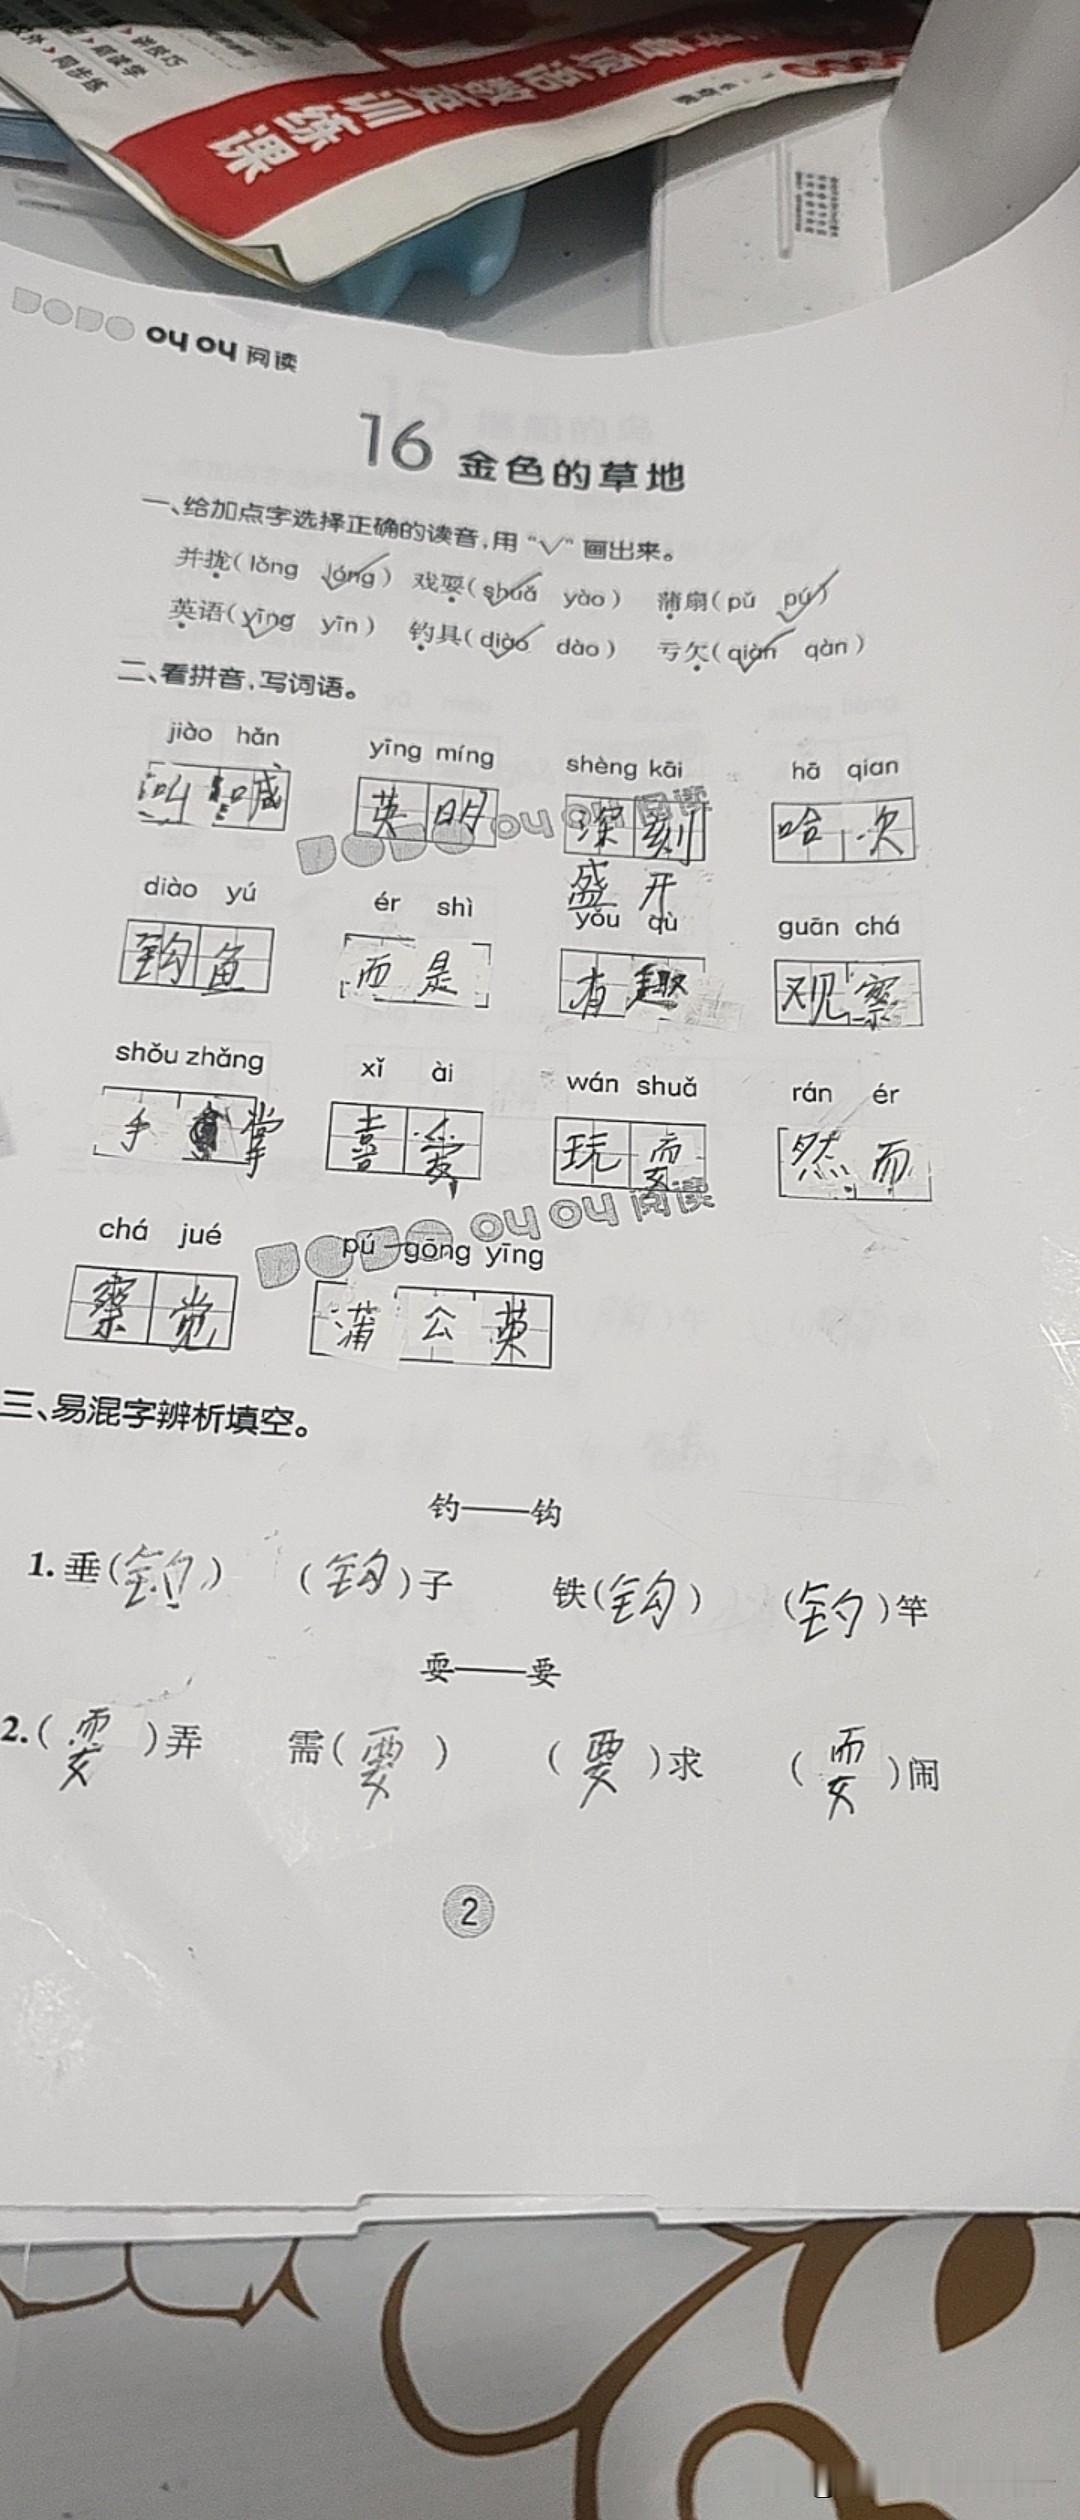 训练课
oyoy阅读
16 金色的草地
一、给加点字选择正确的读音,用“√”画出来。
并拢(lǒng lóng) 戏耍(shuǎ yào) 蒲扇(pǔ pú)
英语(yīng yīn) 钓具(diào dào) 亏欠(qiàn qàn)
二、看拼音,写词语。
jiào hǎn yīng míng shèng kāi hā qian
叫喊 英明 深刻 哈欠
盛开
diào yú ér shì yǒu qù guān chá
钩鱼 而是 有趣 观察
shǒu zhǎng xǐ ài wán shuǎ rán ér
手掌 喜爱 玩耍 然而
chá jué pú gōng yīng
察觉 蒲公英
三、易混字辨析填空。
钓——钩
1.垂(钓) (钩)子 铁(钩) (钓)竿
耍——要
2.(耍)弄 需(要) (要)求 (耍)闹
2